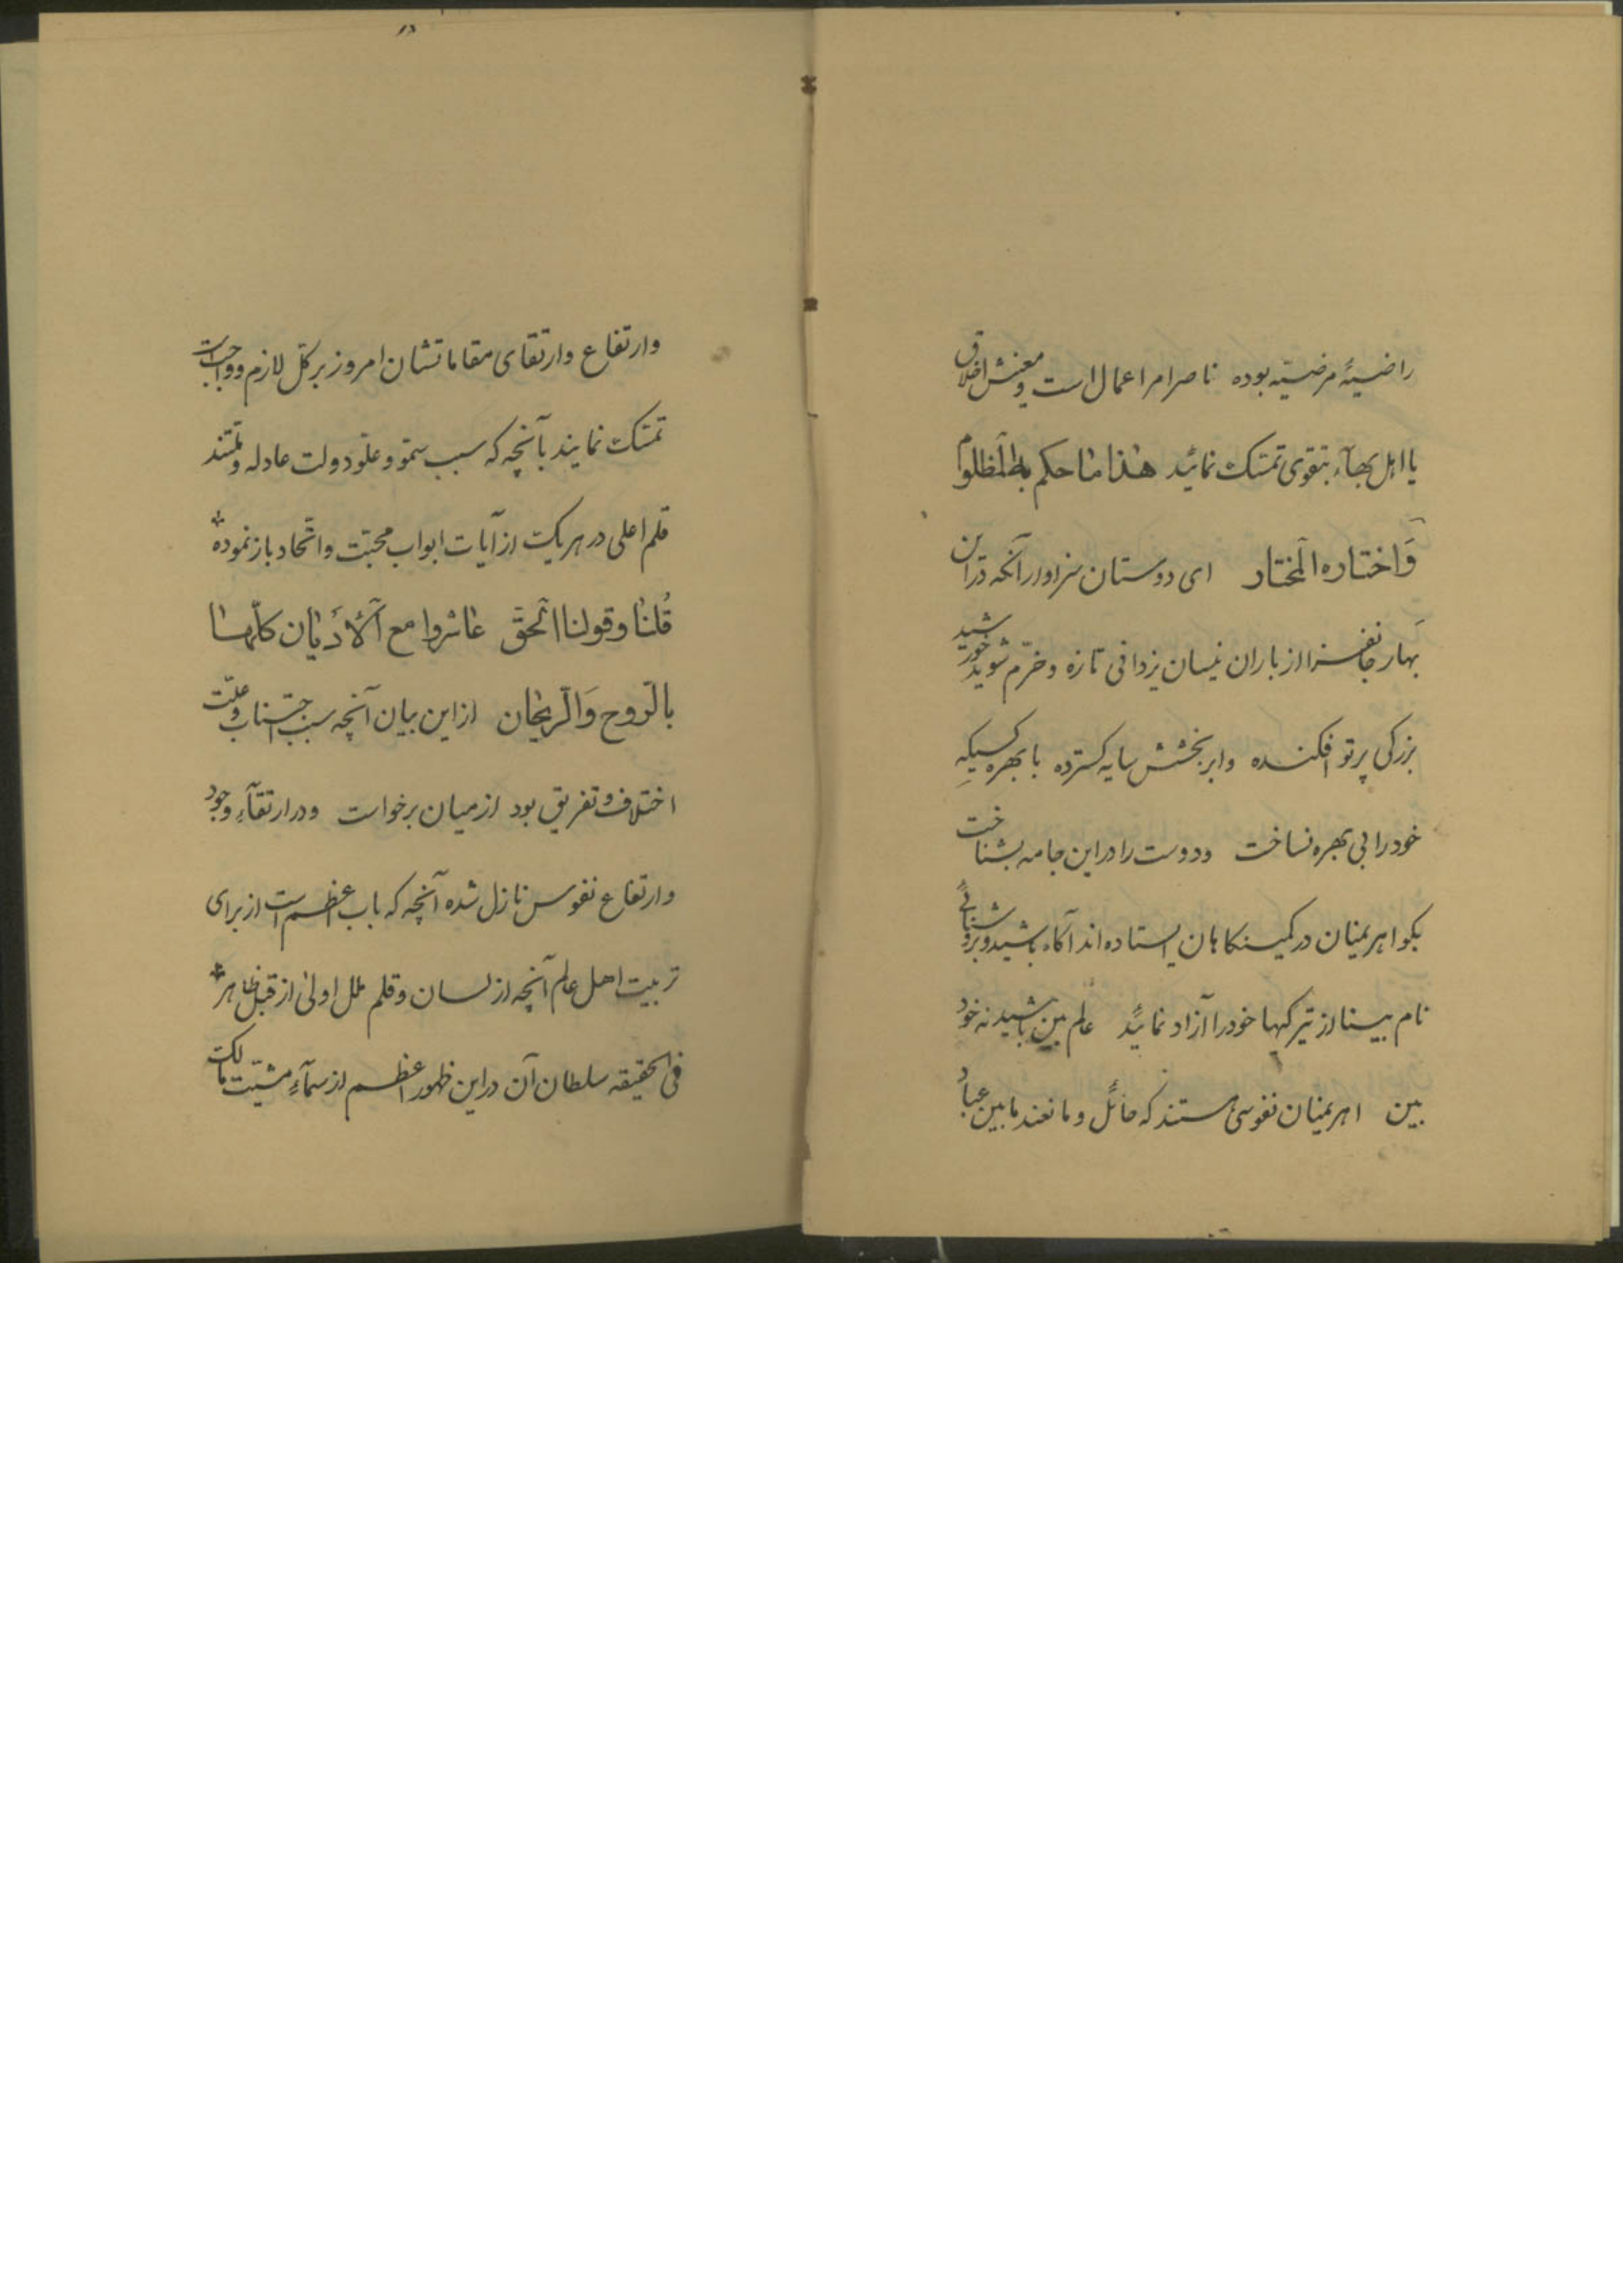 راضیهٔ مرضیّه بوده ناصر امر اعمال است و معینش اخلاق
یا اهل بهآء بتقوی تمسّک نمائید هذا ما حکم به المظلوم
وَاختاره المختار ای دوستان سزاوار آنکه در این
بهار جانفزا از باران نیسان یزدانی تازه و خرّم شوید خورشید
بزرکی پرتو افکنده و ابر بخشش سایه کسترده با بهره کسیکه
خود را بی بهره نساخت و دوست را در این جامه بشناخت
بکو اهریمنان در کمینکاهان ایستاده اند آکاه باشید و بروشنائی
نام بینا از تیرکیها خود را آزاد نمائید عالم بین باشید نه خود
بین اهریمنان نفوسی هستند که حائل و مانعند مابین عباد
وارتفاع وارتقای مقاماتشان امروز بر کلّ لازم و واجب است
تمسّک نمایند بآنچه که سبب سموّ و علوّ دولت عادله و ملّتند
قلم اعلی در هر یک از آیات ابواب محبّت و اتّحاد باز نموده
قُلنا و قولنا الحقّ عاشروا مع الأدیان کلّها
بالرّوح وَالرّیحان از این بیان آنچه سبب اجتناب و علّت
اختلاف و تفریق بود از میان برخواست و در ارتقآءِ وجود
وارتفاع نفوس نازل شده آنچه که باب اعظم است از برای
تربیت اهل عالم آنچه از لسان و قلم ملل اولی از قبل ظاهر
فی الحقیقه سلطان آن در این ظهور اعظم از سمآءِ مشیّت مالک